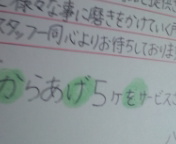 様々な事に磨きをかけていく所
スタッフ一同心よりお待ちしておりま
からあげ5ケをサービス